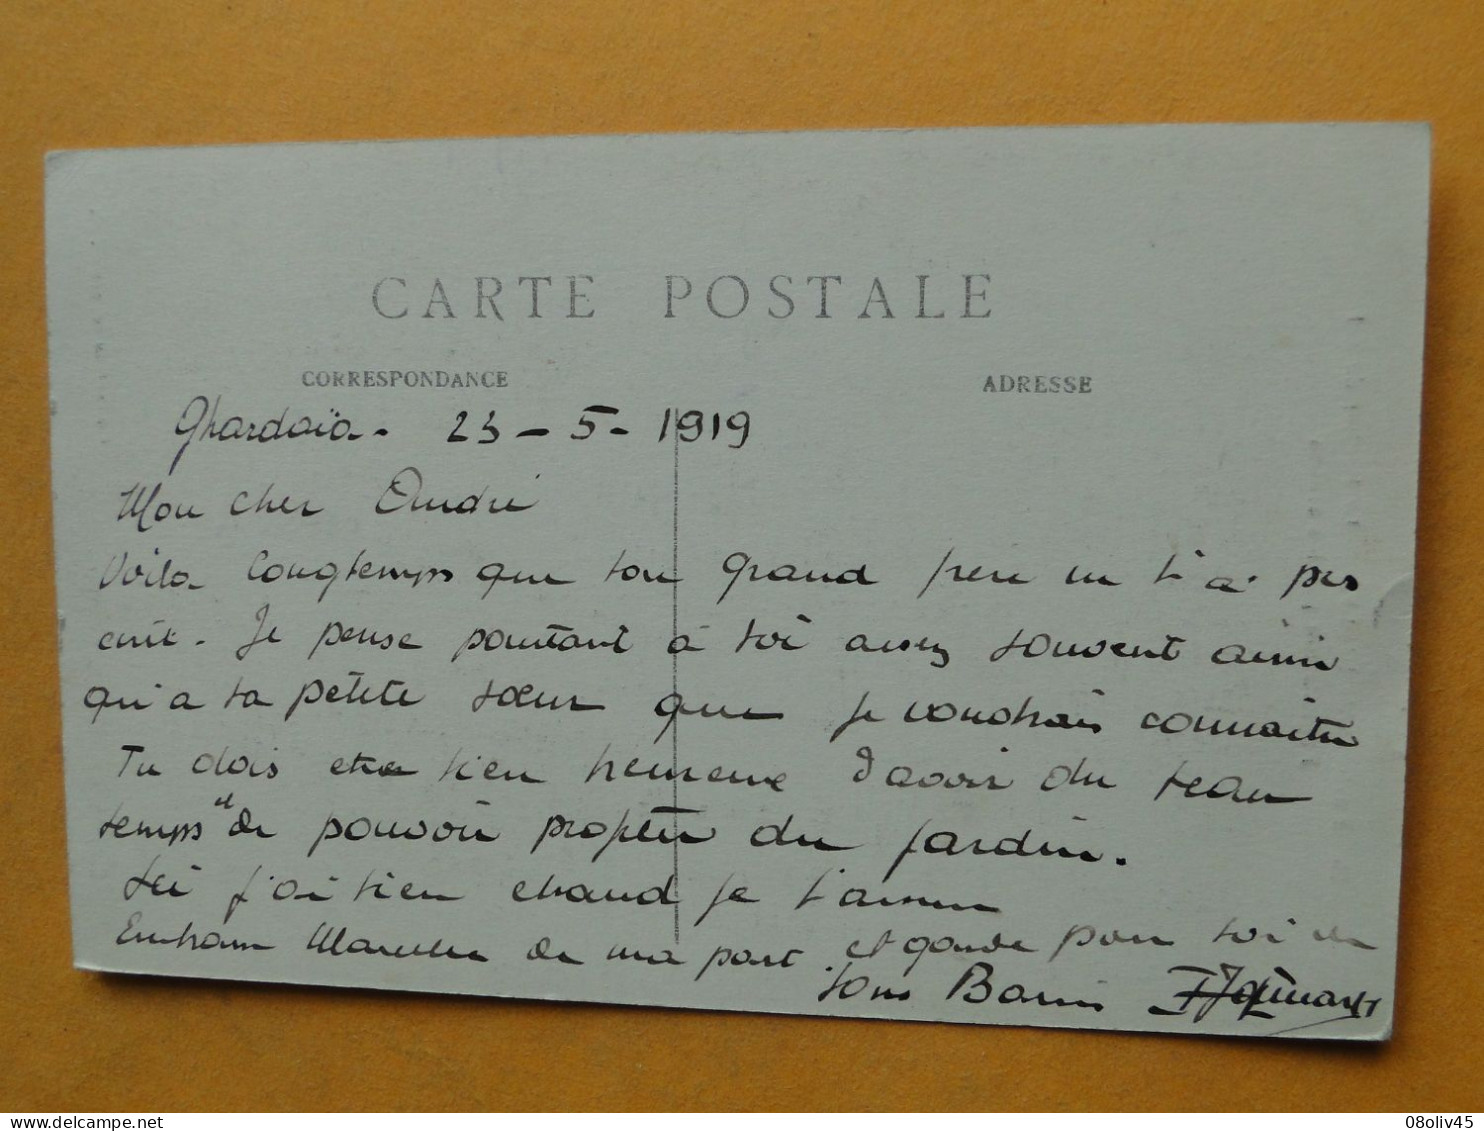 CARTE POSTALE
CORRESPONDANCE
ADRESSE
Ghardaïa - 23 - 5 - 1919
Mon cher André
Voila longtemps que ton grand père ne t'a pas
écrit. Je pense pourtant à toi assez souvent ainsi
qu'a ta petite sœur que je voudrais connaitre
Tu dois etre bien heureux d'avoir du beau
temps et de pouvoir profiter du jardin.
Ici j'ai bien chaud je t'assure
Embrasse Marcelle de ma part et garde pour toi un
bons
08oliv45